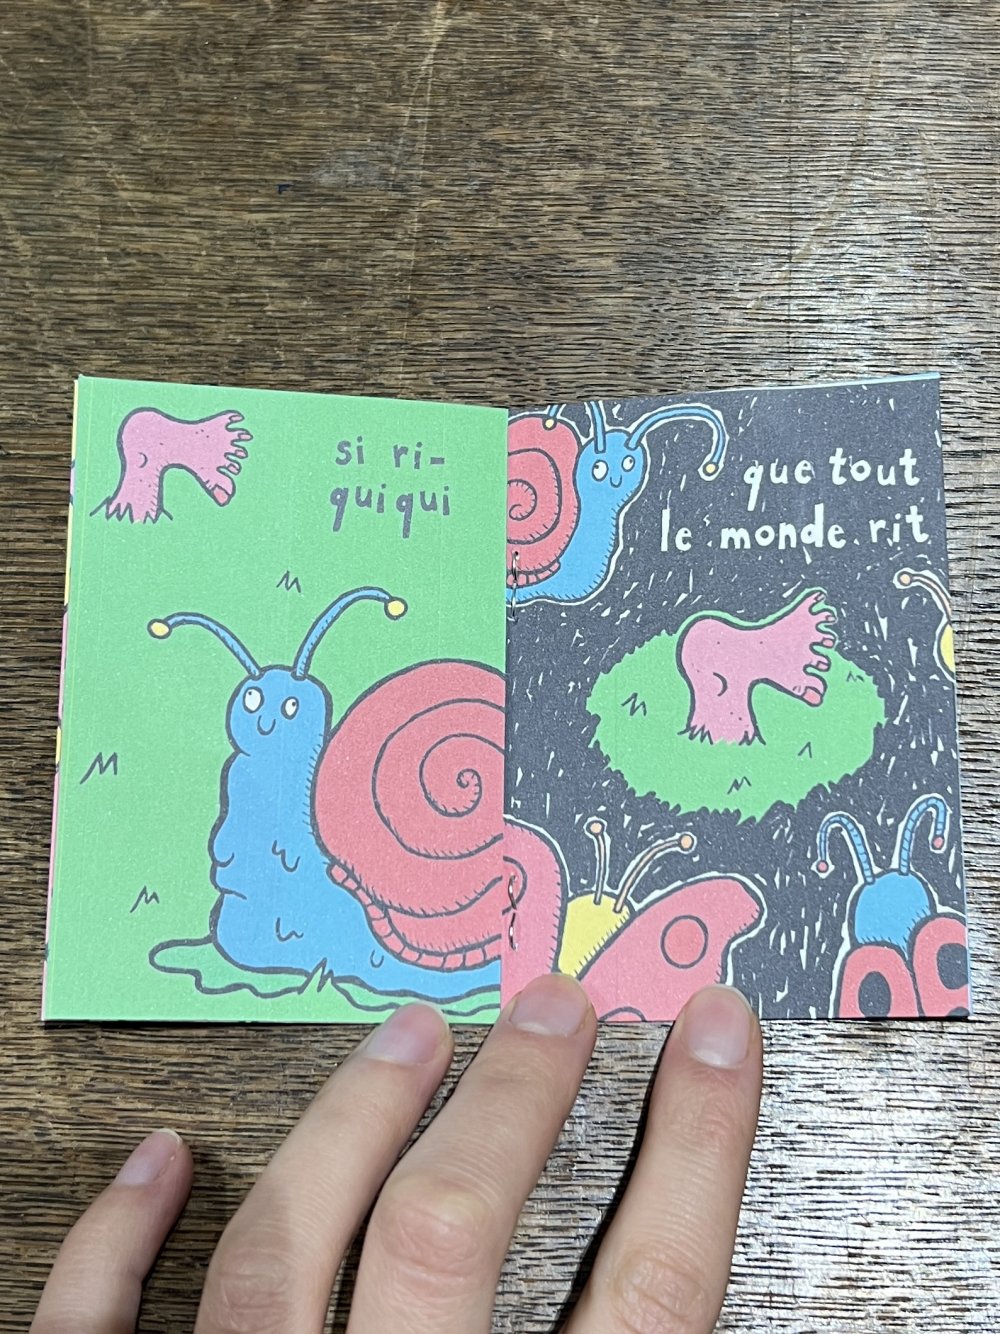 si ri-
quiqui
que tout
le monde rit